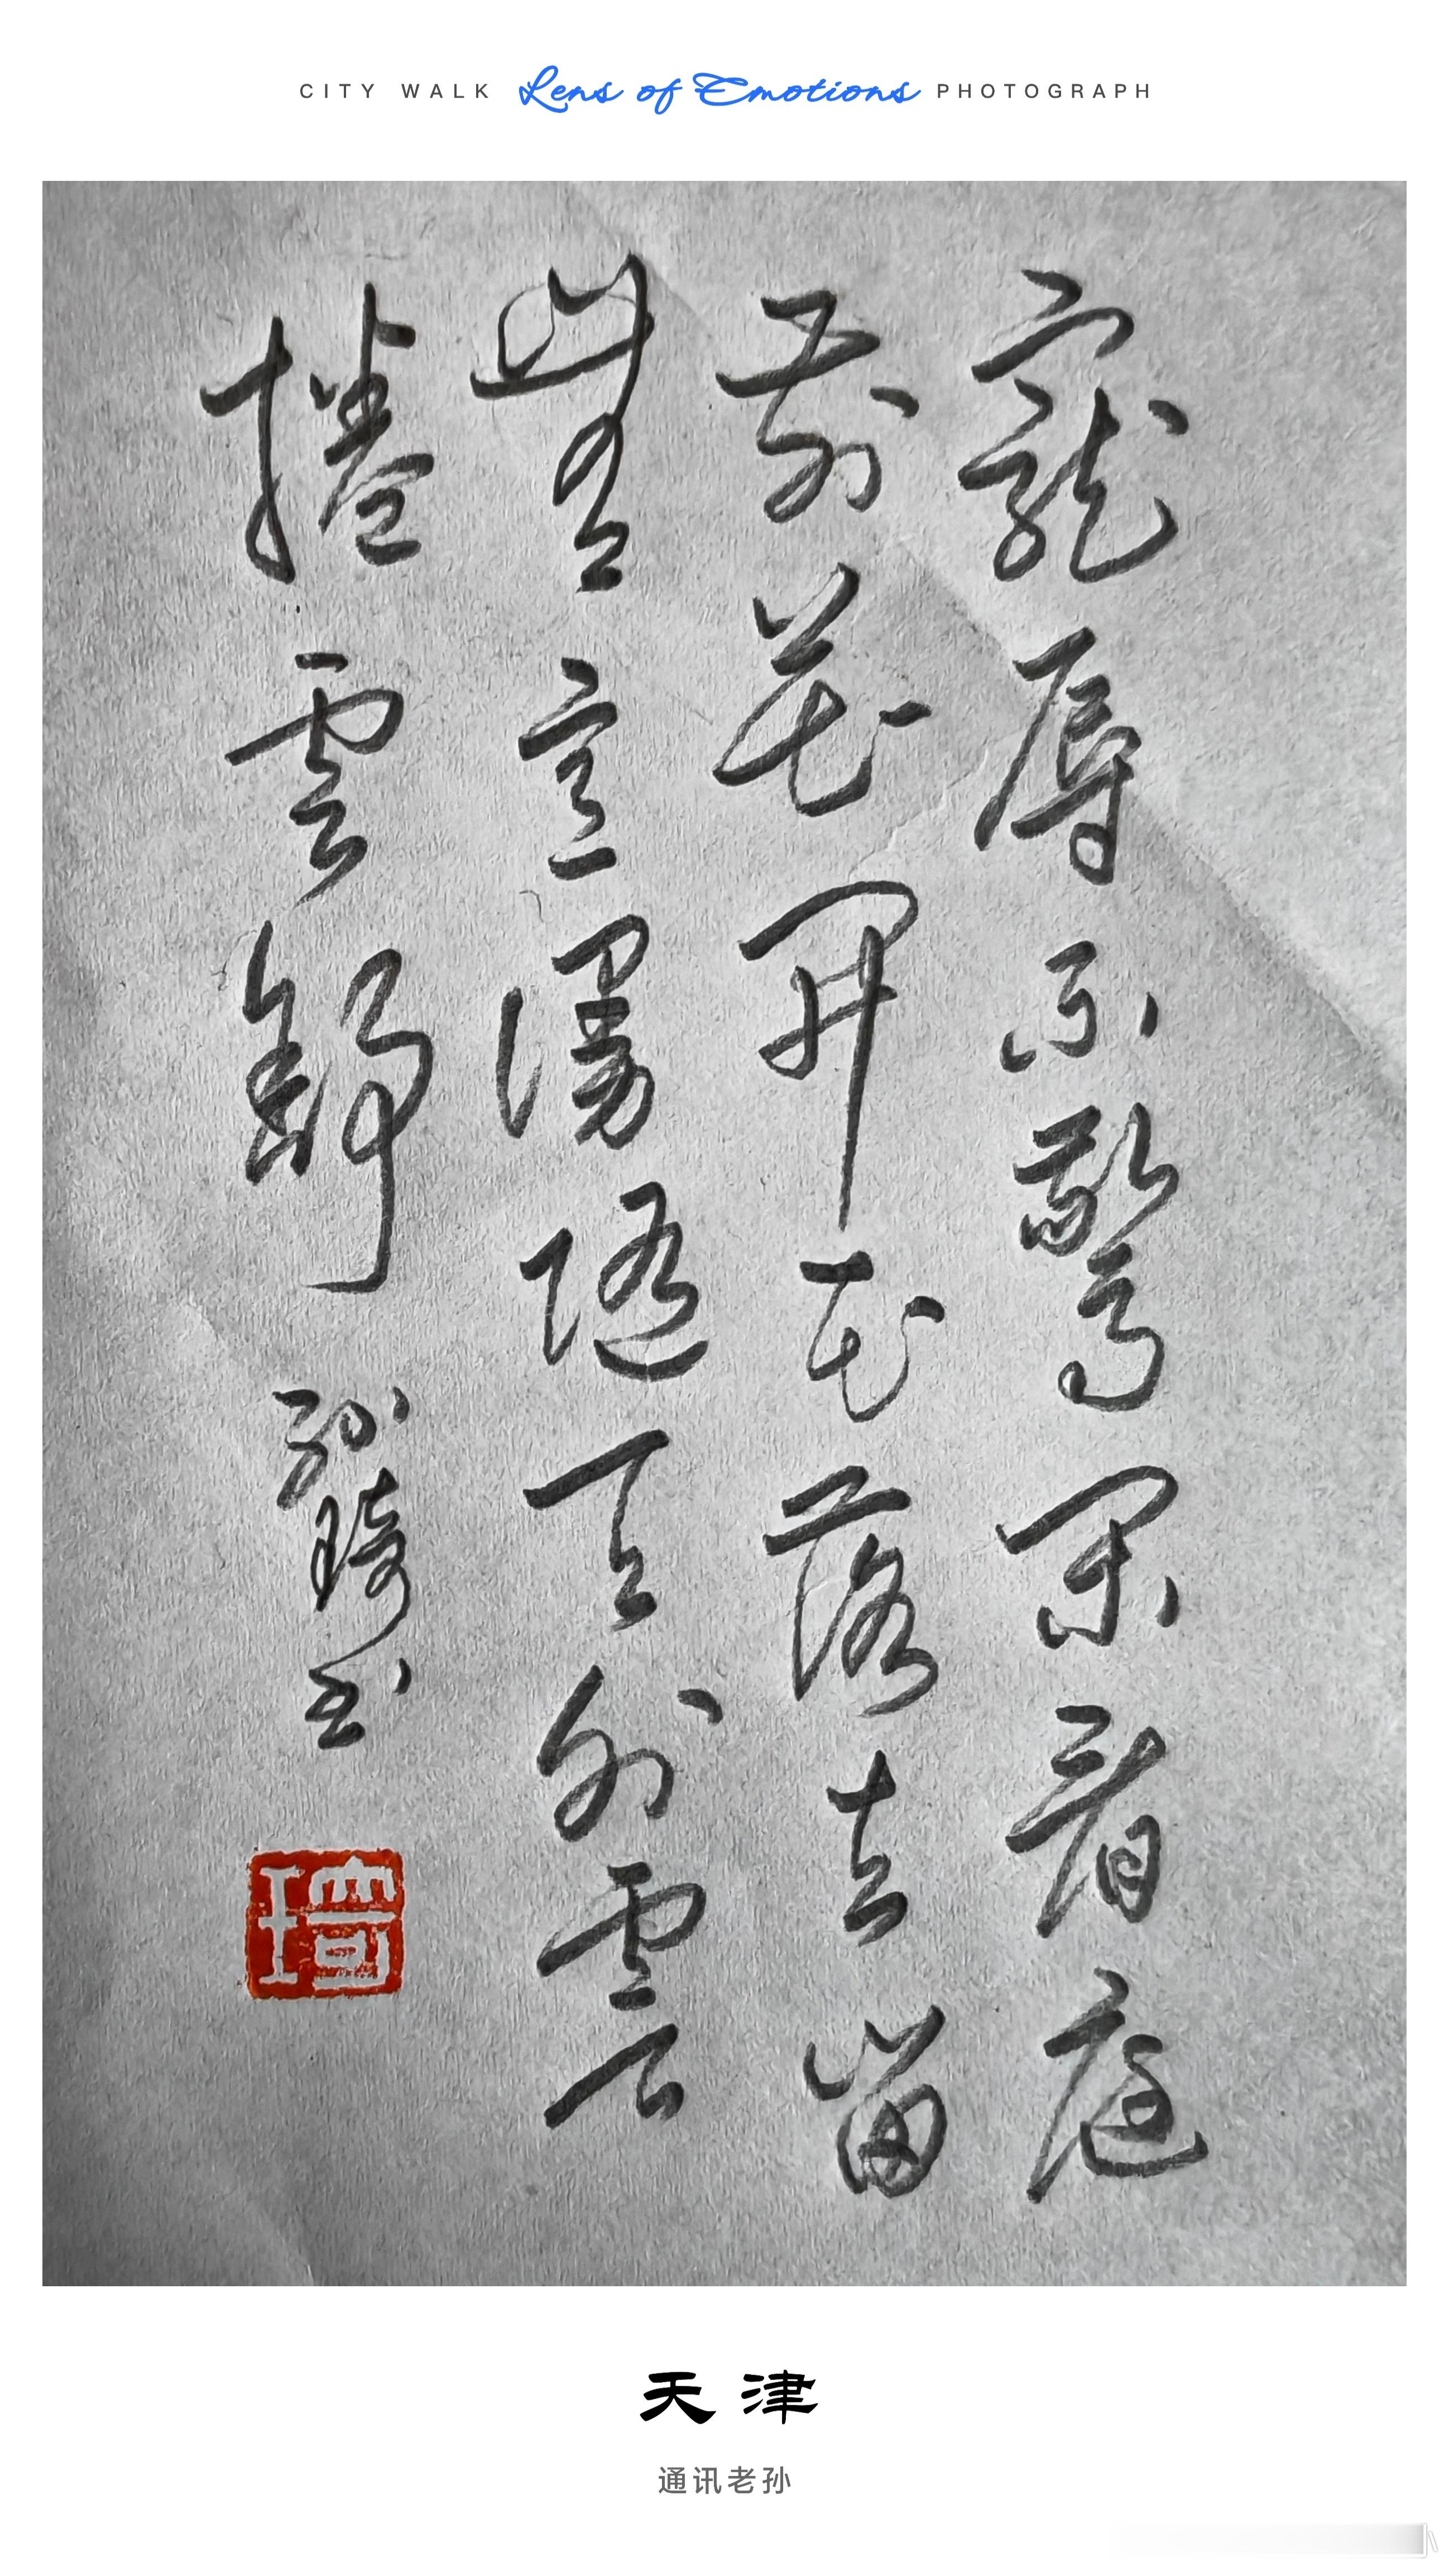 CITY WALK Lens of Emotions PHOTOGRAPH
寵辱不驚閑看庭
前花開花落去留
無意漫隨天外雲
捲雲舒
孫琦书
琦
天津
通讯老孙